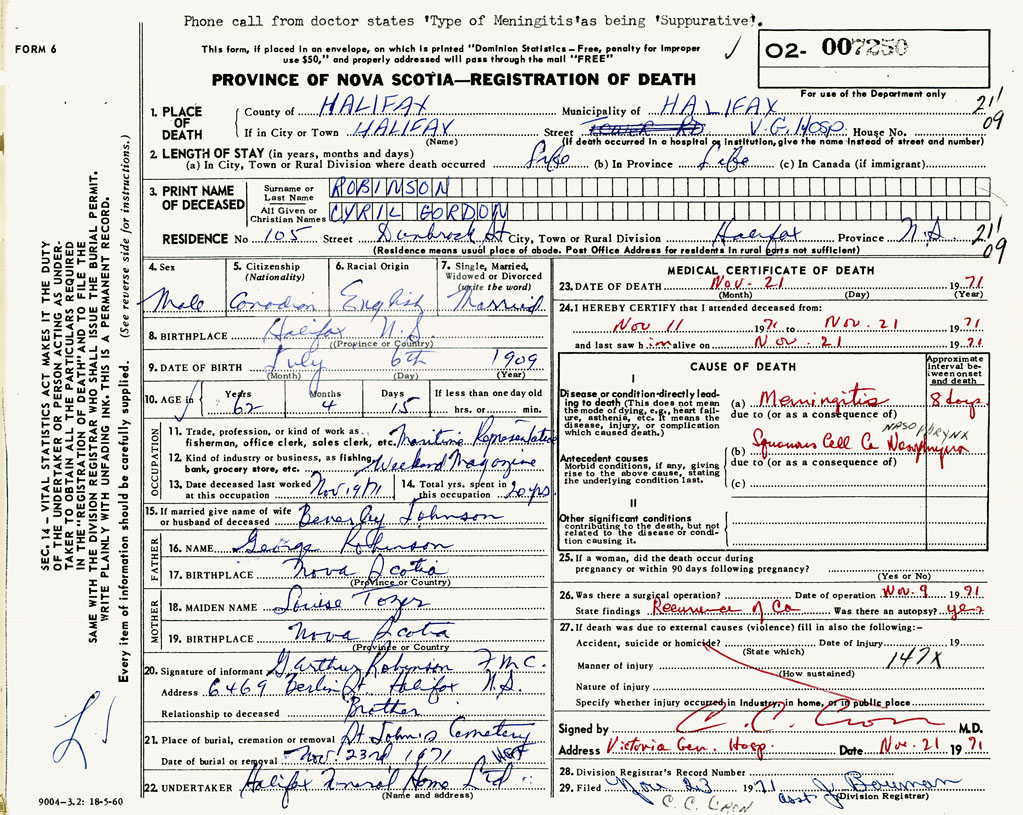 Phone call from doctor states 'Type of Meningitis'as being 'Suppurative'.
FORM 6
This form, if placed in an envelope, on which is printed "Dominion Statistics – Free, penalty for improper
use $50," and properly addressed will pass through the mail "FREE"
O2- 007250
For use of the Department only
PROVINCE OF NOVA SCOTIA—REGISTRATION OF DEATH
211
09
1. PLACE OF DEATH
County of HALIFAX Municipality of HALIFAX
If in City or Town HALIFAX Street V.G. Hosp. House No.
(Name) (If death occurred in a hospital or institution, give the name instead of street and number)
2. LENGTH OF STAY (in years, months and days)
(a) In City, Town or Rural Division where death occurred Life (b) In Province Life (c) In Canada (if immigrant)
3. PRINT NAME OF DECEASED
Surname or Last Name ROBINSON
All Given or Christian Names CYRIL GORDON
RESIDENCE No 105 Street Dunbrack St City, Town or Rural Division Halifax Province N.S.
211
09
(Residence means usual place of abode. Post Office Address for residents in rural parts not sufficient)
4. Sex
Male
5. Citizenship (Nationality)
Canadian
6. Racial Origin
English
7. Single, Married, Widowed or Divorced (write the word)
Married
8. BIRTHPLACE Halifax N.S.
(Province or Country)
9. DATE OF BIRTH July 6th 1909
(Month) (Day) (Year)
10. AGE in Years Months Days If less than one day old
62 4 15 hrs. or min.
OCCUPATION
11. Trade, profession, or kind of work as
fisherman, office clerk, sales clerk, etc. Maritime Representative
12. Kind of industry or business, as fishing,
bank, grocery store, etc. Weekend Magazine
13. Date deceased last worked at this occupation Nov 1971
14. Total yrs. spent in this occupation 20 yrs
15. If married give name of wife
or husband of deceased Beverley Johnson
FATHER
16. NAME George Robinson
17. BIRTHPLACE Nova Scotia
(Province or Country)
MOTHER
18. MAIDEN NAME Louise Tozer
19. BIRTHPLACE Nova Scotia
(Province or Country
20. Signature of informant G. Arthur Robinson
Address 6469 Berlin St. Halifax N.S.
Relationship to deceased Brother
21. Place of burial, cremation or removal St. John's Cemetery
Date of burial or removal Nov. 23rd 1971 West
22. UNDERTAKER Halifax Funeral Home Ltd
(Name and address)
9004–3.2: 18-5-60
SEC. 14 – VITAL STATISTICS ACT MAKES IT THE DUTY
OF THE UNDERTAKER OR PERSON ACTING AS UNDER-
TAKER TO OBTAIN ALL THE PARTICULARS REQUIRED
IN THE "REGISTRATION OF DEATH" AND TO FILE THE
SAME WITH THE DIVISION REGISTRAR WHO SHALL ISSUE THE BURIAL PERMIT.
WRITE PLAINLY WITH UNFADING INK. THIS IS A PERMANENT RECORD.
Every item of information should be carefully supplied. (See reverse side for instructions.)
MEDICAL CERTIFICATE OF DEATH
23. DATE OF DEATH Nov. 21 1971
(Month) (Day) (Year)
24. I HEREBY CERTIFY that I attended deceased from:
Nov 11 1971 to Nov. 21 1971
and last saw him alive on Nov. 21 1971
CAUSE OF DEATH
Approximate interval between onset and death
I
Disease or condition directly lead-
ing to death (This does not mean
the mode of dying, e.g., heart fail-
ure, asthenia, etc. It means the
disease, injury, or complication
which caused death.)
(a) Meningitis 8 days
due to (or as a consequence of)
NASO PHARYNX
(b) Squamous Cell Ca Nasopharynx
due to (or as a consequence of)
Antecedent causes
Morbid conditions, if any, giving
rise to the above cause, stating
the underlying condition last.
(c)
II
Other significant conditions
contributing to the death, but not
related to the disease or condi-
tion causing it.
25. If a woman, did the death occur during
pregnancy or within 90 days following pregnancy?
(Yes or No)
26. Was there a surgical operation? Date of operation Nov. 9 1971
State findings Recurrence of Ca Was there an autopsy? yes
27. If death was due to external causes (violence) fill in also the following:-
Accident, suicide or homicide? Date of injury 19
(State which)
147X
Manner of injury
(How sustained)
Nature of injury
Specify whether injury occurred in industry, in home, or in public place
Signed by C. C. Cron M.D.
Address Victoria Gen. Hosp. Date Nov. 21 1971
28. Division Registrar's Record Number
29. Filed Nov 23 1971 asst J Bauman
(Division Registrar)
C. C. CRON